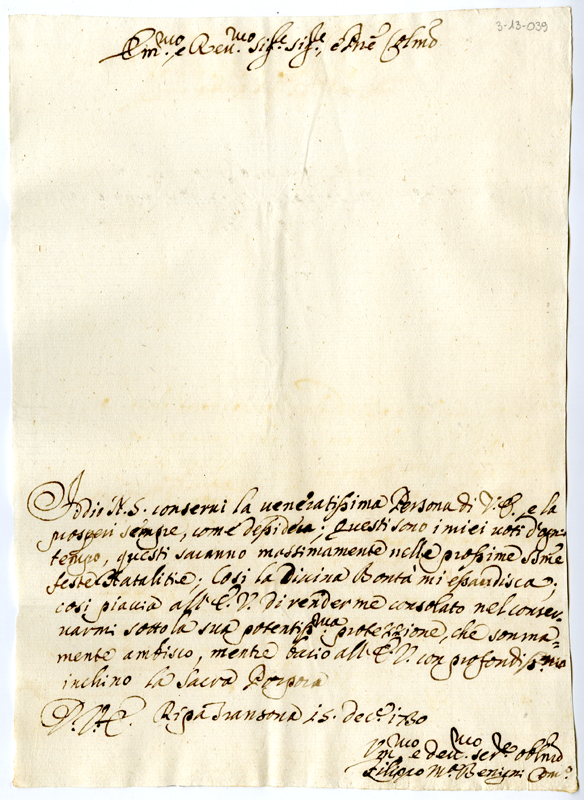 3-13-039
Em.mo, e Rev.mo Sig.re Sig.re, e Pne Colmo
Iddio N. S. conservi la veneratissima Persona di V. E., e la
prosperi sempre, come desidera, questi sono i miei voti d'ogni
tempo, questi saranno massimamente nelle prossime Sante
feste Natalitie; Così la Divina Bontà mi esaudisca;
così piaccia all'E. V. di rendermi consolato nel conser-
varmi sotto la sua potentissma protezzione, che somma-
mente ambisco, mentre bacio all'E. V. con profondissmo
inchino la Sacra Porpora
D. V. E. Ripatransona 15. Dec.e 1730
Um.mo e dev.mo ser.re obl.mo
Filippo M.a Benigni